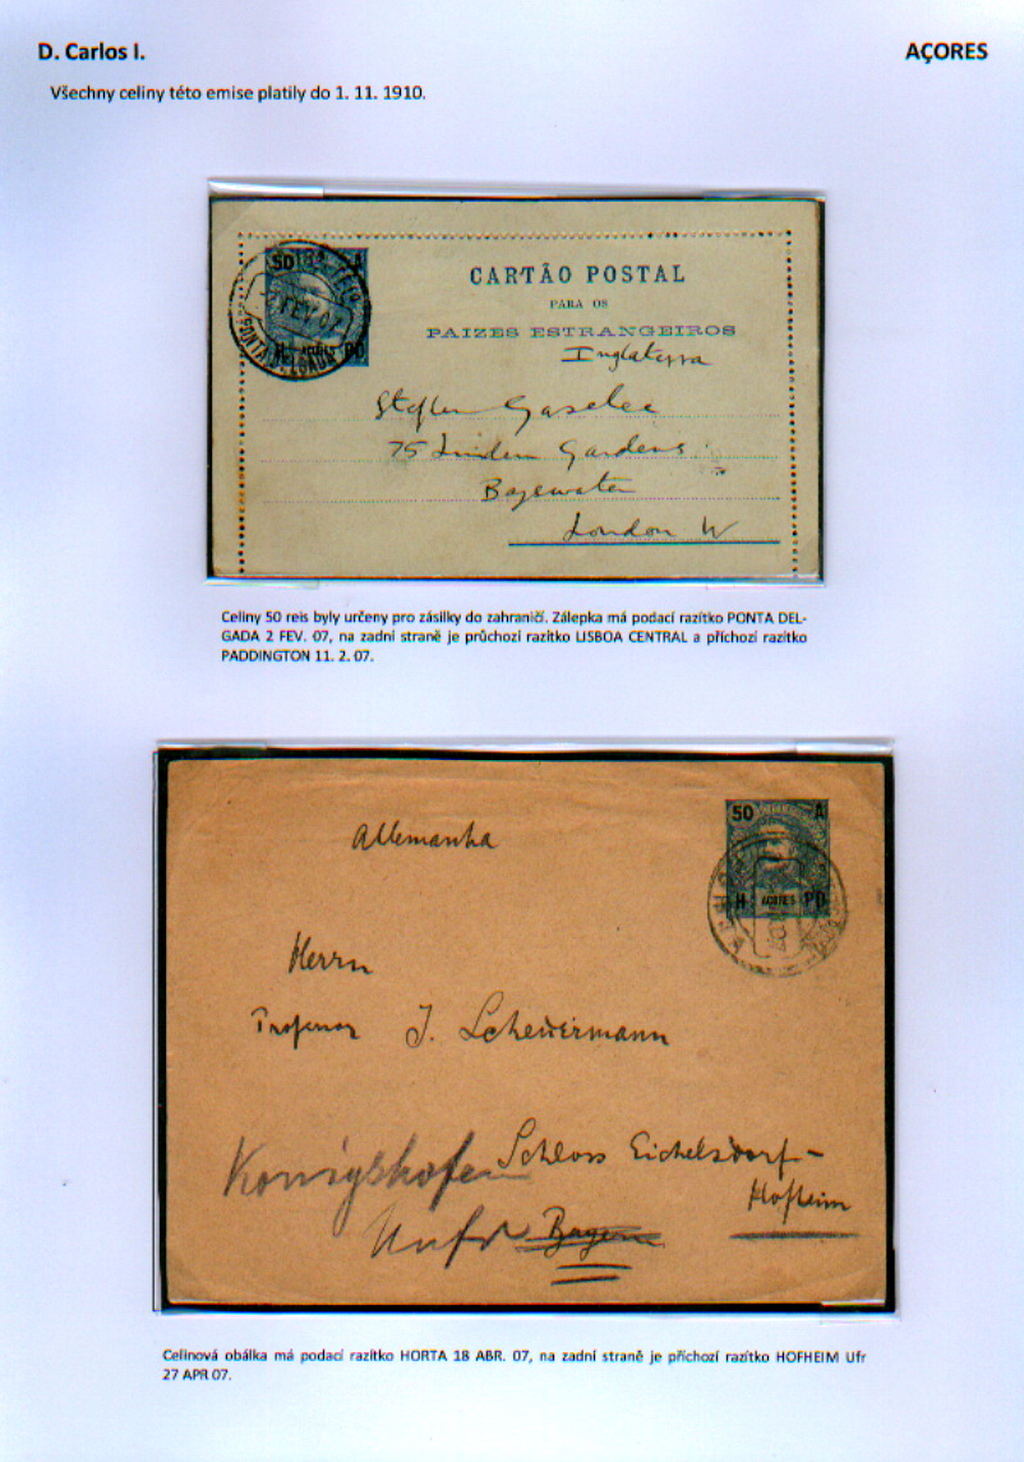 D. Carlos I.
AÇORES
Všechny celiny této emise platily do 1. 11. 1910.
50 A
2 FEV 07
PONTA DELGADA
H AÇORES PD
CARTÃO POSTAL
PARA OS
PAIZES ESTRANGEIROS
Inglaterra
Stephen Gaselee
75 Linden Gardens
Bayswater
London W
Celiny 50 reis byly určeny pro zásilky do zahraničí. Zálepka má podací razítko PONTA DEL-
GADA 2 FEV. 07, na zadní straně je průchozí razítko LISBOA CENTRAL a příchozí razítko
PADDINGTON 11. 2. 07.
50 A
H AÇORES PD
Allemanha
Herrn
Professor J. Scheuermann
Schloss Eichelsdorf-
Königshofen
Hofheim
Unfr Bayern
Celinová obálka má podací razítko HORTA 18 ABR. 07, na zadní straně je příchozí razítko HOFHEIM Ufr
27 APR 07.